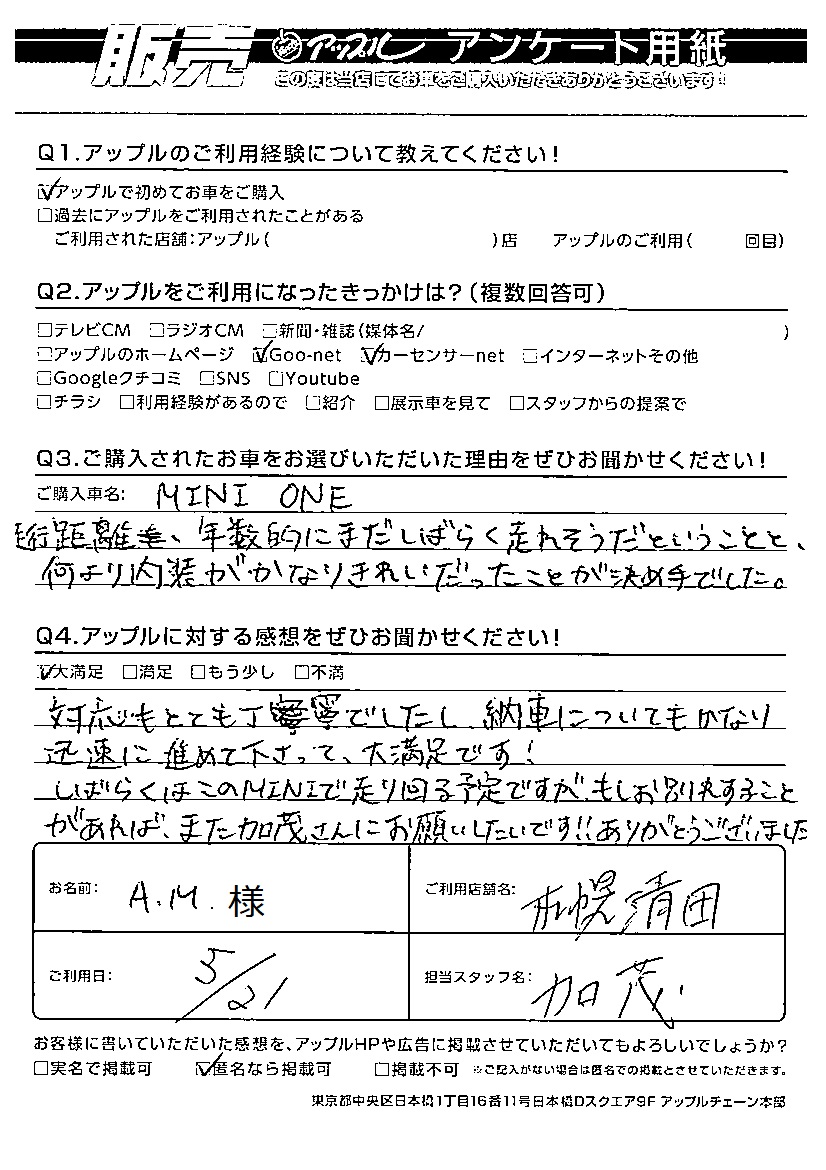 販売 アップル アンケート用紙
この度は当店にてお車をご購入いただきありがとうございます!
Q1.アップルのご利用経験について教えてください!
☑アップルで初めてお車をご購入
□過去にアップルをご利用されたことがある
ご利用された店舗:アップル( )店 アップルのご利用( 回目)
Q2.アップルをご利用になったきっかけは?(複数回答可)
□テレビCM □ラジオCM □新聞・雑誌(媒体名/ )
□アップルのホームページ ☑Goo-net ☑カーセンサーnet □インターネットその他
□Googleクチコミ □SNS □Youtube
□チラシ □利用経験があるので □紹介 □展示車を見て □スタッフからの提案で
Q3.ご購入されたお車をお選びいただいた理由をぜひお聞かせください!
ご購入車名: MINI ONE
走行距離、年数的にまだしばらく走れそうだということと、
何より内装がかなりきれいだったことが決め手でした。
Q4.アップルに対する感想をぜひお聞かせください!
☑大満足 □満足 □もう少し □不満
対応もとても丁寧でしたし、納車についてもかなり
迅速に進めて下さって、大満足です!
しばらくはこのMINIで走り回る予定ですが、もしお別れすること
があれば、また加茂さんにお願いしたいです!!ありがとうございました
お名前: A.M. 様
ご利用店舗名: 札幌清田
ご利用日: 5/21
担当スタッフ名: 加茂
お客様に書いていただいた感想を、アップルHPや広告に掲載させていただいてもよろしいでしょうか?
□実名で掲載可 ☑匿名なら掲載可 □掲載不可 ※ご記入がない場合は匿名での掲載とさせていただきます。
東京都中央区日本橋1丁目16番11号日本橋Dスクエア9F アップルチェーン本部